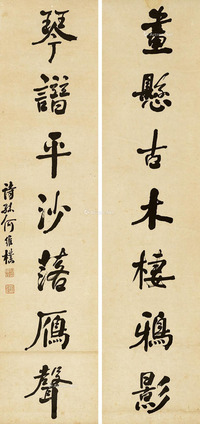 畫懸古木棲鴉影
琴譜平沙落鴈聲
詩孫何維樸